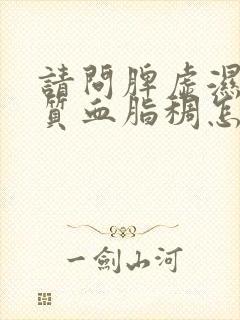 請問脾虛濕
質血脂稠怎
一劍山河